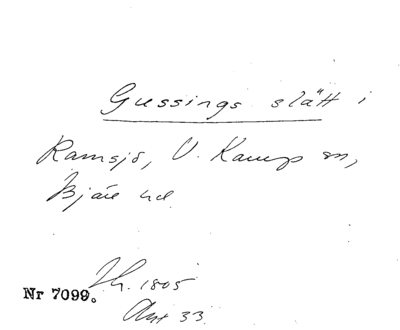 Gussings slätt i
Ramsjö, V. Karup sn,
Bjäre hd.
Nr 7099.
1805
33